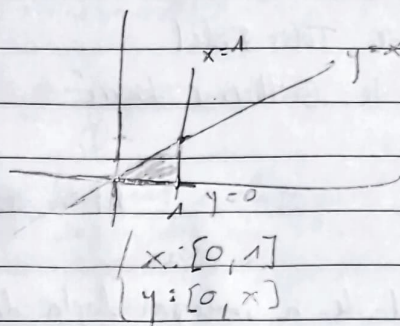 x=1
y=x
1 y=0
x:[0,1]
y:[0,x]